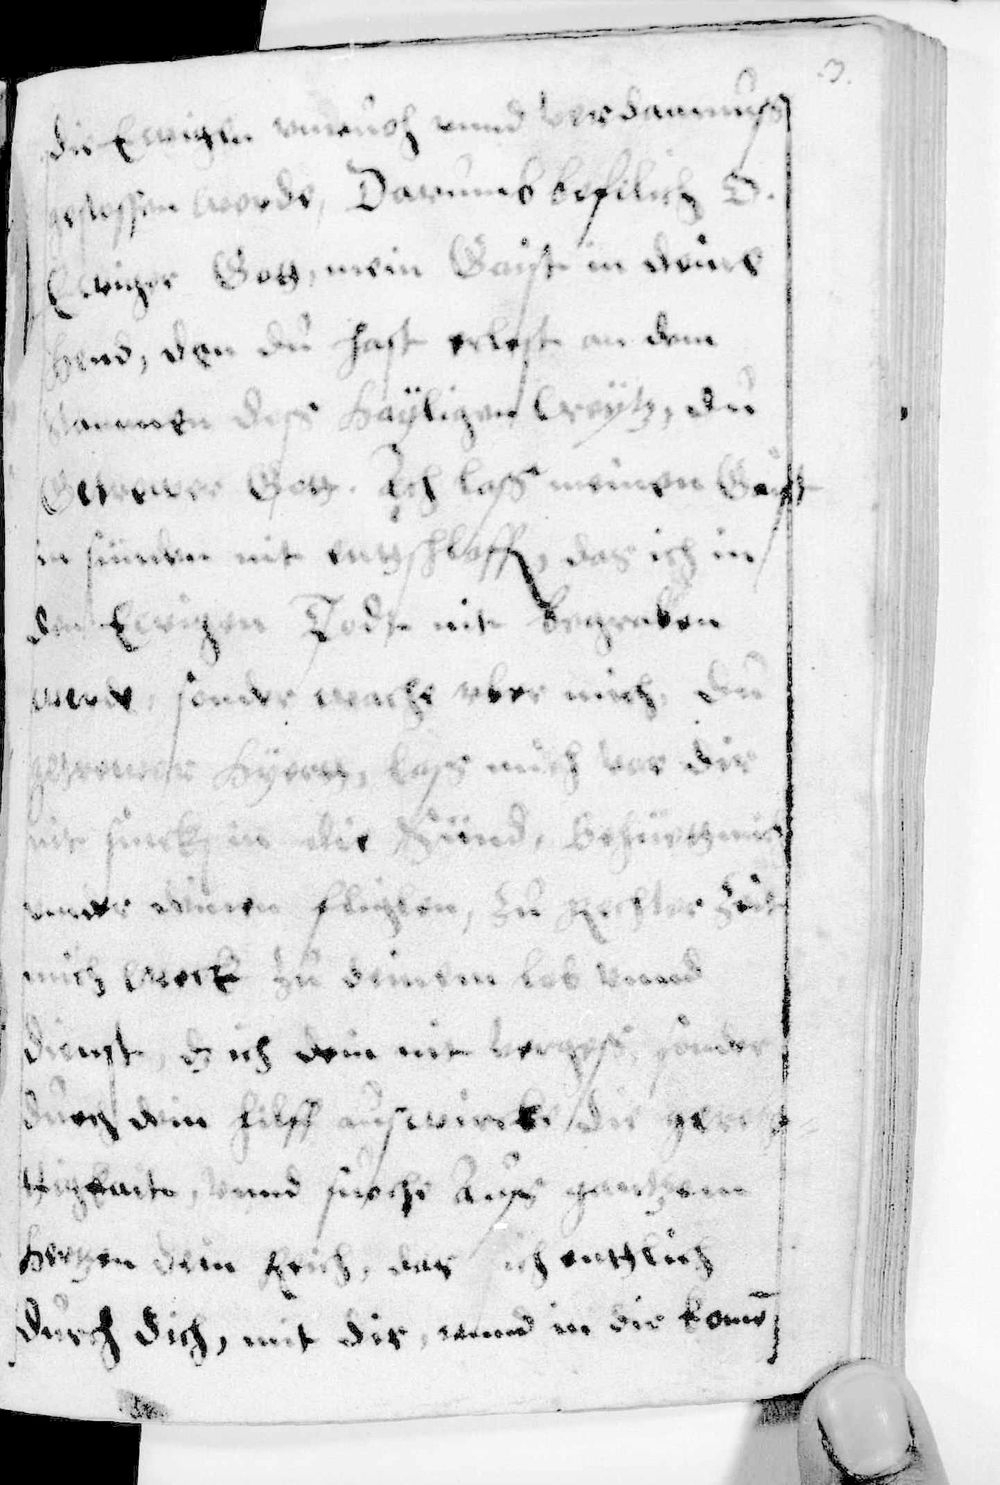 3.
die Ewigen vnruoh vnnd verdamnuss
gestossen werde, Darumb befilich O.
Ewiger Gott, mein Gaist in deine
Hend, den du hast erlest an dem
Stammen dess Hayligen Creytz, du
Getrewer Gott. Ach lass meinen Gaist
in sünden nit entschlaff, das ich in
den Ewigen Todt nit begraben
werde, sonder wache vber mich, du
getrewer Hyertt, lass mich vor dir
nit sinck in die Sünd, behüett mich
vnder deinen fliglen, zu rechter Zeit
mich weck zu deinem lob vnnd
dienst, dz ich dein nit vergess, sonder
durch dein hilff auswircke die gerech-
tigkait, vnnd suoche auss gantzem
Hertzen dein Reich, das ich entlich
durch dich, mit dir, vnnd in dir kom̄